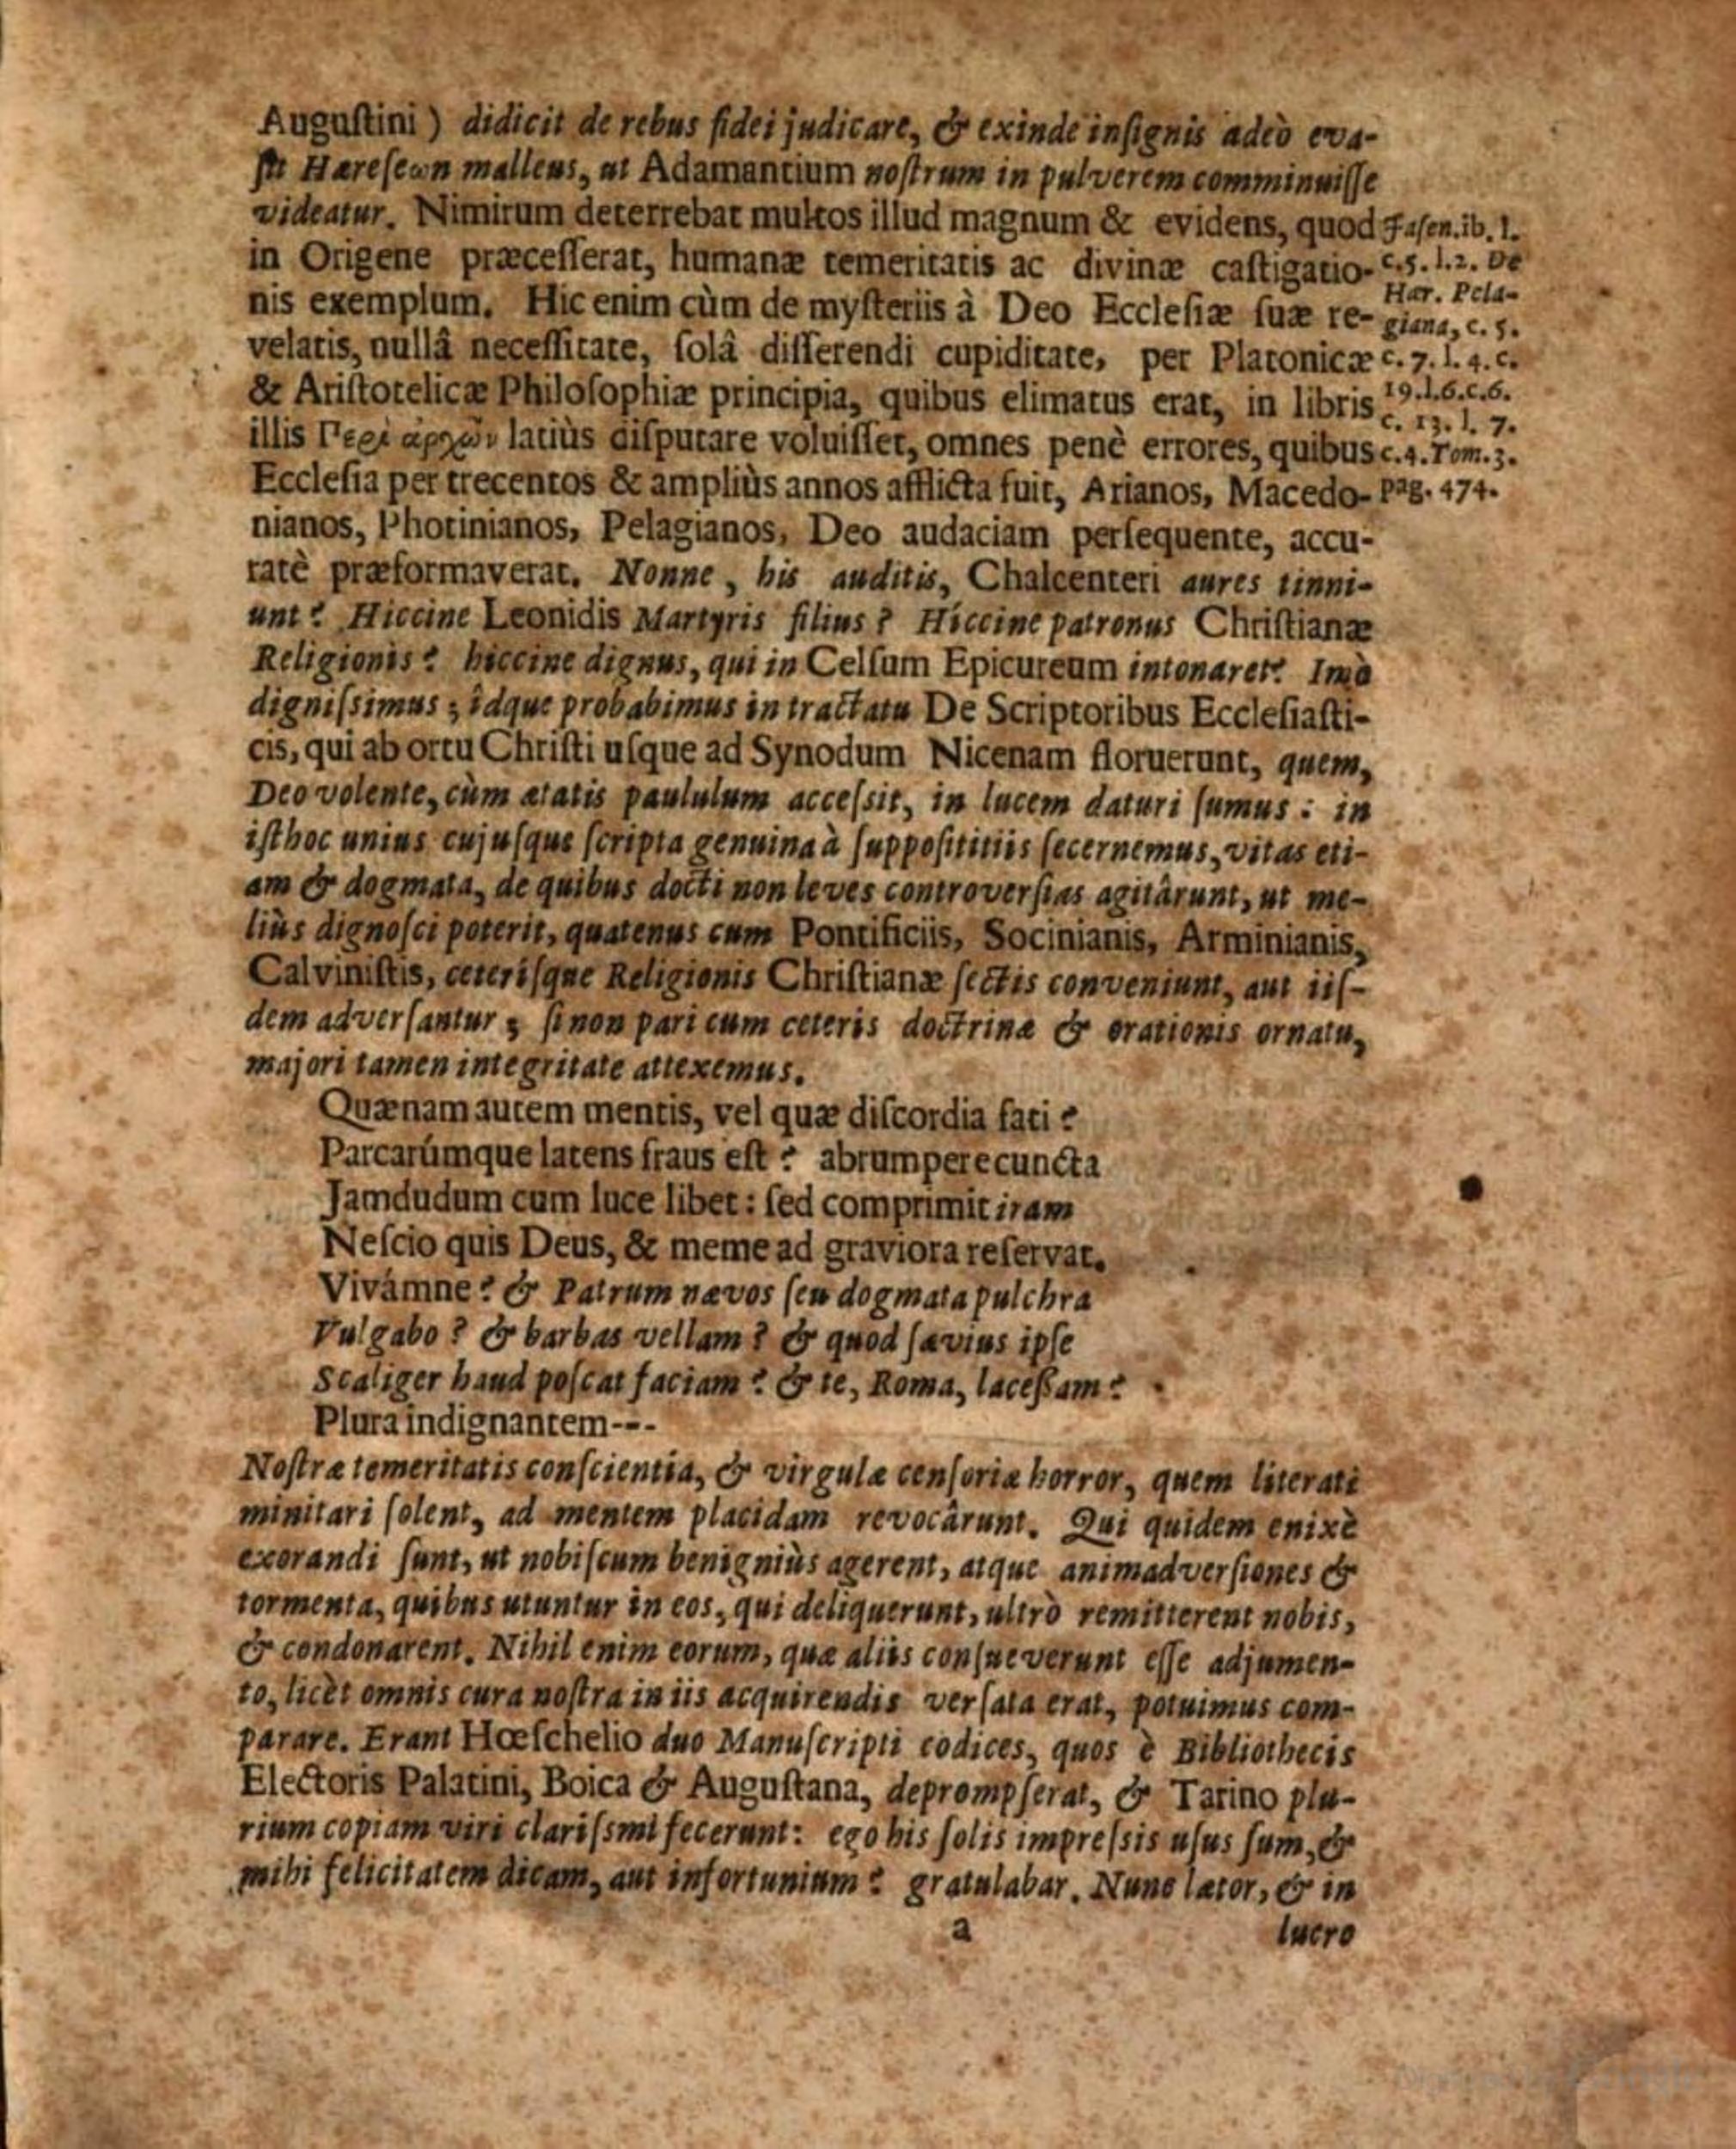 Auguſtini) didicit de rebus fidei judicare, & exinde inſignis adeò eva-
ſit Hæreſeωn malleus, ut Adamantium noſtrum in pulverem comminuiſſe
videatur. Nimirum deterrebat multos illud magnum & evidens, quod
in Origene præceſſerat, humanæ temeritatis ac divinæ caſtigatio-
nis exemplum. Hic enim cùm de myſteriis à Deo Eccleſiæ ſuæ re-
velatis, nullâ neceſſitate, ſolâ diſſerendi cupiditate, per Platonicæ
& Ariſtotelicæ Philoſophiæ principia, quibus elimatus erat, in libris
illis Περὶ ἀρχῶν latiùs diſputare voluiſſet, omnes penè errores, quibus
Eccleſia per trecentos & ampliùs annos afflicta fuit, Arianos, Macedo-
nianos, Photinianos, Pelagianos, Deo audaciam perſequente, accu-
ratè præformaverat. Nonne, his auditis, Chalcenteri aures tinni-
unt? Hiccine Leonidis Martyris filius? Hiccine patronus Chriſtianæ
Religionis? hiccine dignus, qui in Celſum Epicureum intonaret? Imò
digniſsimus; idque probabimus in tractatu De Scriptoribus Eccleſiaſti-
cis, qui ab ortu Chriſti uſque ad Synodum Nicenam floruerunt, quem,
Deo volente, cùm ætatis paululum acceſsit, in lucem daturi ſumus: in
iſthoc unius cujuſque ſcripta genuina à ſuppoſititiis ſecernemus, vitas eti-
am & dogmata, de quibus docti non leves controverſias agitârunt, ut me-
liùs dignoſci poterit, quatenus cum Pontificiis, Socinianis, Arminianis,
Calviniſtis, ceteriſque Religionis Chriſtianæ ſectis conveniunt, aut iiſ-
dem adverſantur; ſi non pari cum ceteris doctrinæ & orationis ornatu,
majori tamen integritate attexemus.
Quænam autem mentis, vel quæ diſcordia fati?
Parcarúmque latens fraus eſt? abrumpere cuncta
Jamdudum cum luce libet: ſed comprimit iram
Neſcio quis Deus, & meme ad graviora reſervat.
Vivámne? & Patrum nævos ſeu dogmata pulchra
Vulgabo? & barbas vellam? & quod ſævius ipſe
Scaliger haud poſcat faciam? & te, Roma, laceßam?
Plura indignantem---
Noſtræ temeritatis conſcientia, & virgulæ cenſoriæ horror, quem literati
minitari ſolent, ad mentem placidam revocârunt. Qui quidem enixè
exorandi ſunt, ut nobiſcum benigniùs agerent, atque animadverſiones &
tormenta, quibus utuntur in eos, qui deliquerunt, ultrò remitterent nobis,
& condonarent. Nihil enim eorum, quæ aliis conſueverunt eſſe adjumen-
to, licèt omnis cura noſtra in iis acquirendis verſata erat, potuimus com-
parare. Erant Hœſchelio duo Manuſcripti codices, quos è Bibliothecis
Electoris Palatini, Boica & Auguſtana, deprompſerat, & Tarino plu-
rium copiam viri clariſsmi fecerunt: ego his ſolis impreſsis uſus ſum, &
mihi felicitatem dicam, aut infortunium? gratulabar. Nunc lætor, & in
a lucro
Jaſen. ib. l.
c. 5. l. 2. De
Hær. Pela-
giana, c. 5.
c. 7. l. 4. c.
19. l. 6. c. 6.
c. 13. l. 7.
c. 4. Tom. 3.
pag. 474.